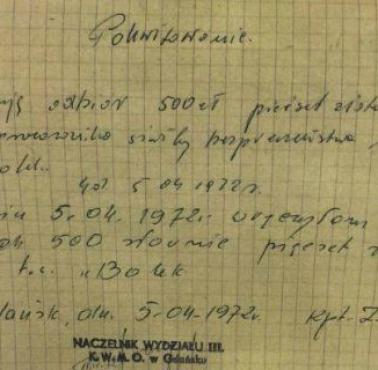 Pokwitowanie.
odbiór 500 zł pięćset złot
pracownika służby bezpieczeństwa
5 04 1972 r.
5.04. 1972r. wręczyłem
500 słownie pięćset
t.w. "Bolek
dn. 5-04-1972. kpt. Z.
NACZELNIK WYDZIAŁU III.
K.W.M.O. w Gdańsku